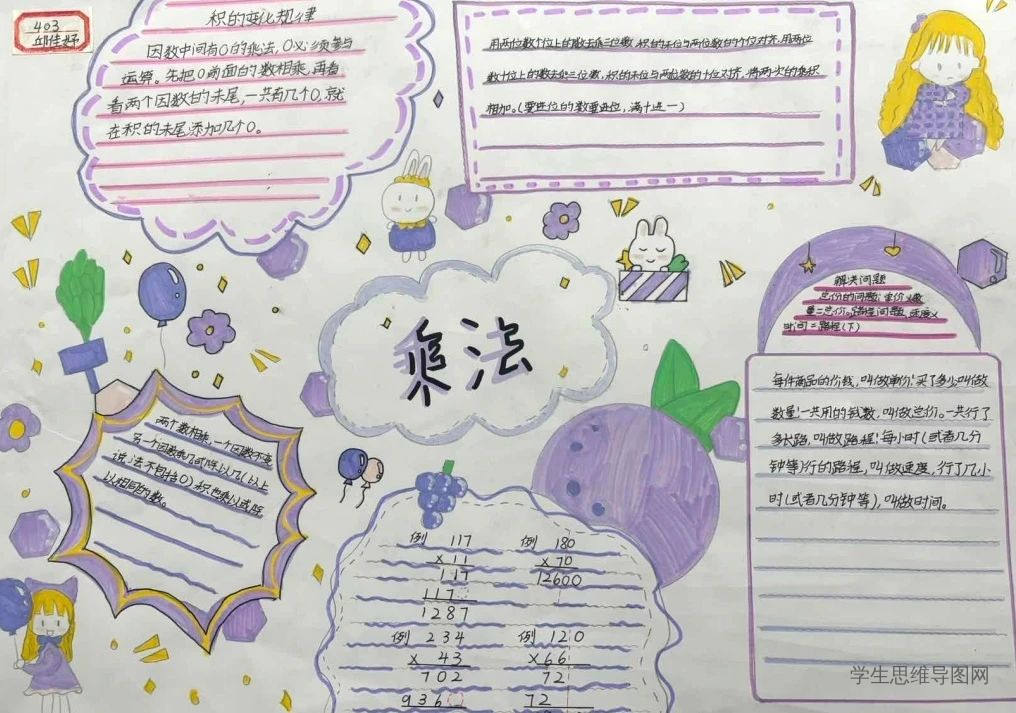 403
邱佳妤
积的变化规律
因数中间有0的乘法,0必须参与
运算。先把0前面的数相乘,再看
看两个因数的末尾,一共有几个0,就
在积的末尾添加几个0。
用两位数个位上的数去乘三位数,积的末位与两位数的个位对齐,用两位
数十位上的数去乘三位数,积的末位与两位数的十位对齐,将两次的乘积
相加。(要进位的数要进位,满十进一)
乘法
解决问题
总价的问题:单价×数
量=总价。路程问题,速度×
时间=路程(下)
每件商品的价钱,叫做单价!买了多少叫做
数量!一共用的钱数,叫做总价。一共行了
多长路,叫做路程!每小时(或者几分
钟等)行的路程,叫做速度,行了几小
时(或者几分钟等),叫做时间。
两个数相乘,一个因数不变
另一个因数乘几或除以几(以上
说法不包括0)积也乘以或除
以相同的数。
例 117
×11
117
117
1287
例 180
×70
12600
例 234
× 43
702
936
例 120
×66
72
72
学生思维导图网